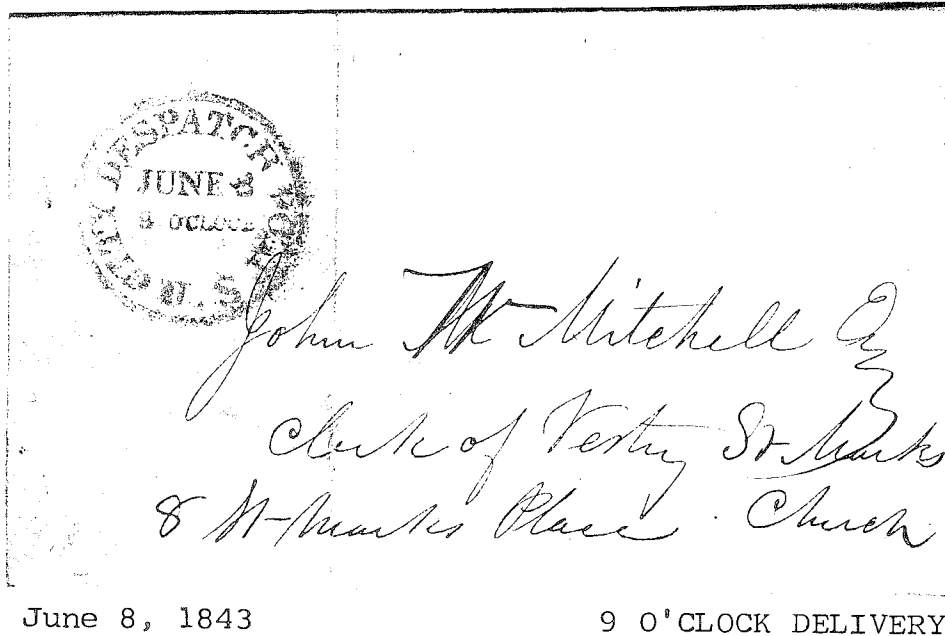 CITY DESPATCH POST
JUNE 8
9 O'CLOCK
U.S
John W Mitchell Esq
Clerk of Vestry St Marks
8 St-Marks Place. Church
June 8, 1843
9 O'CLOCK DELIVERY